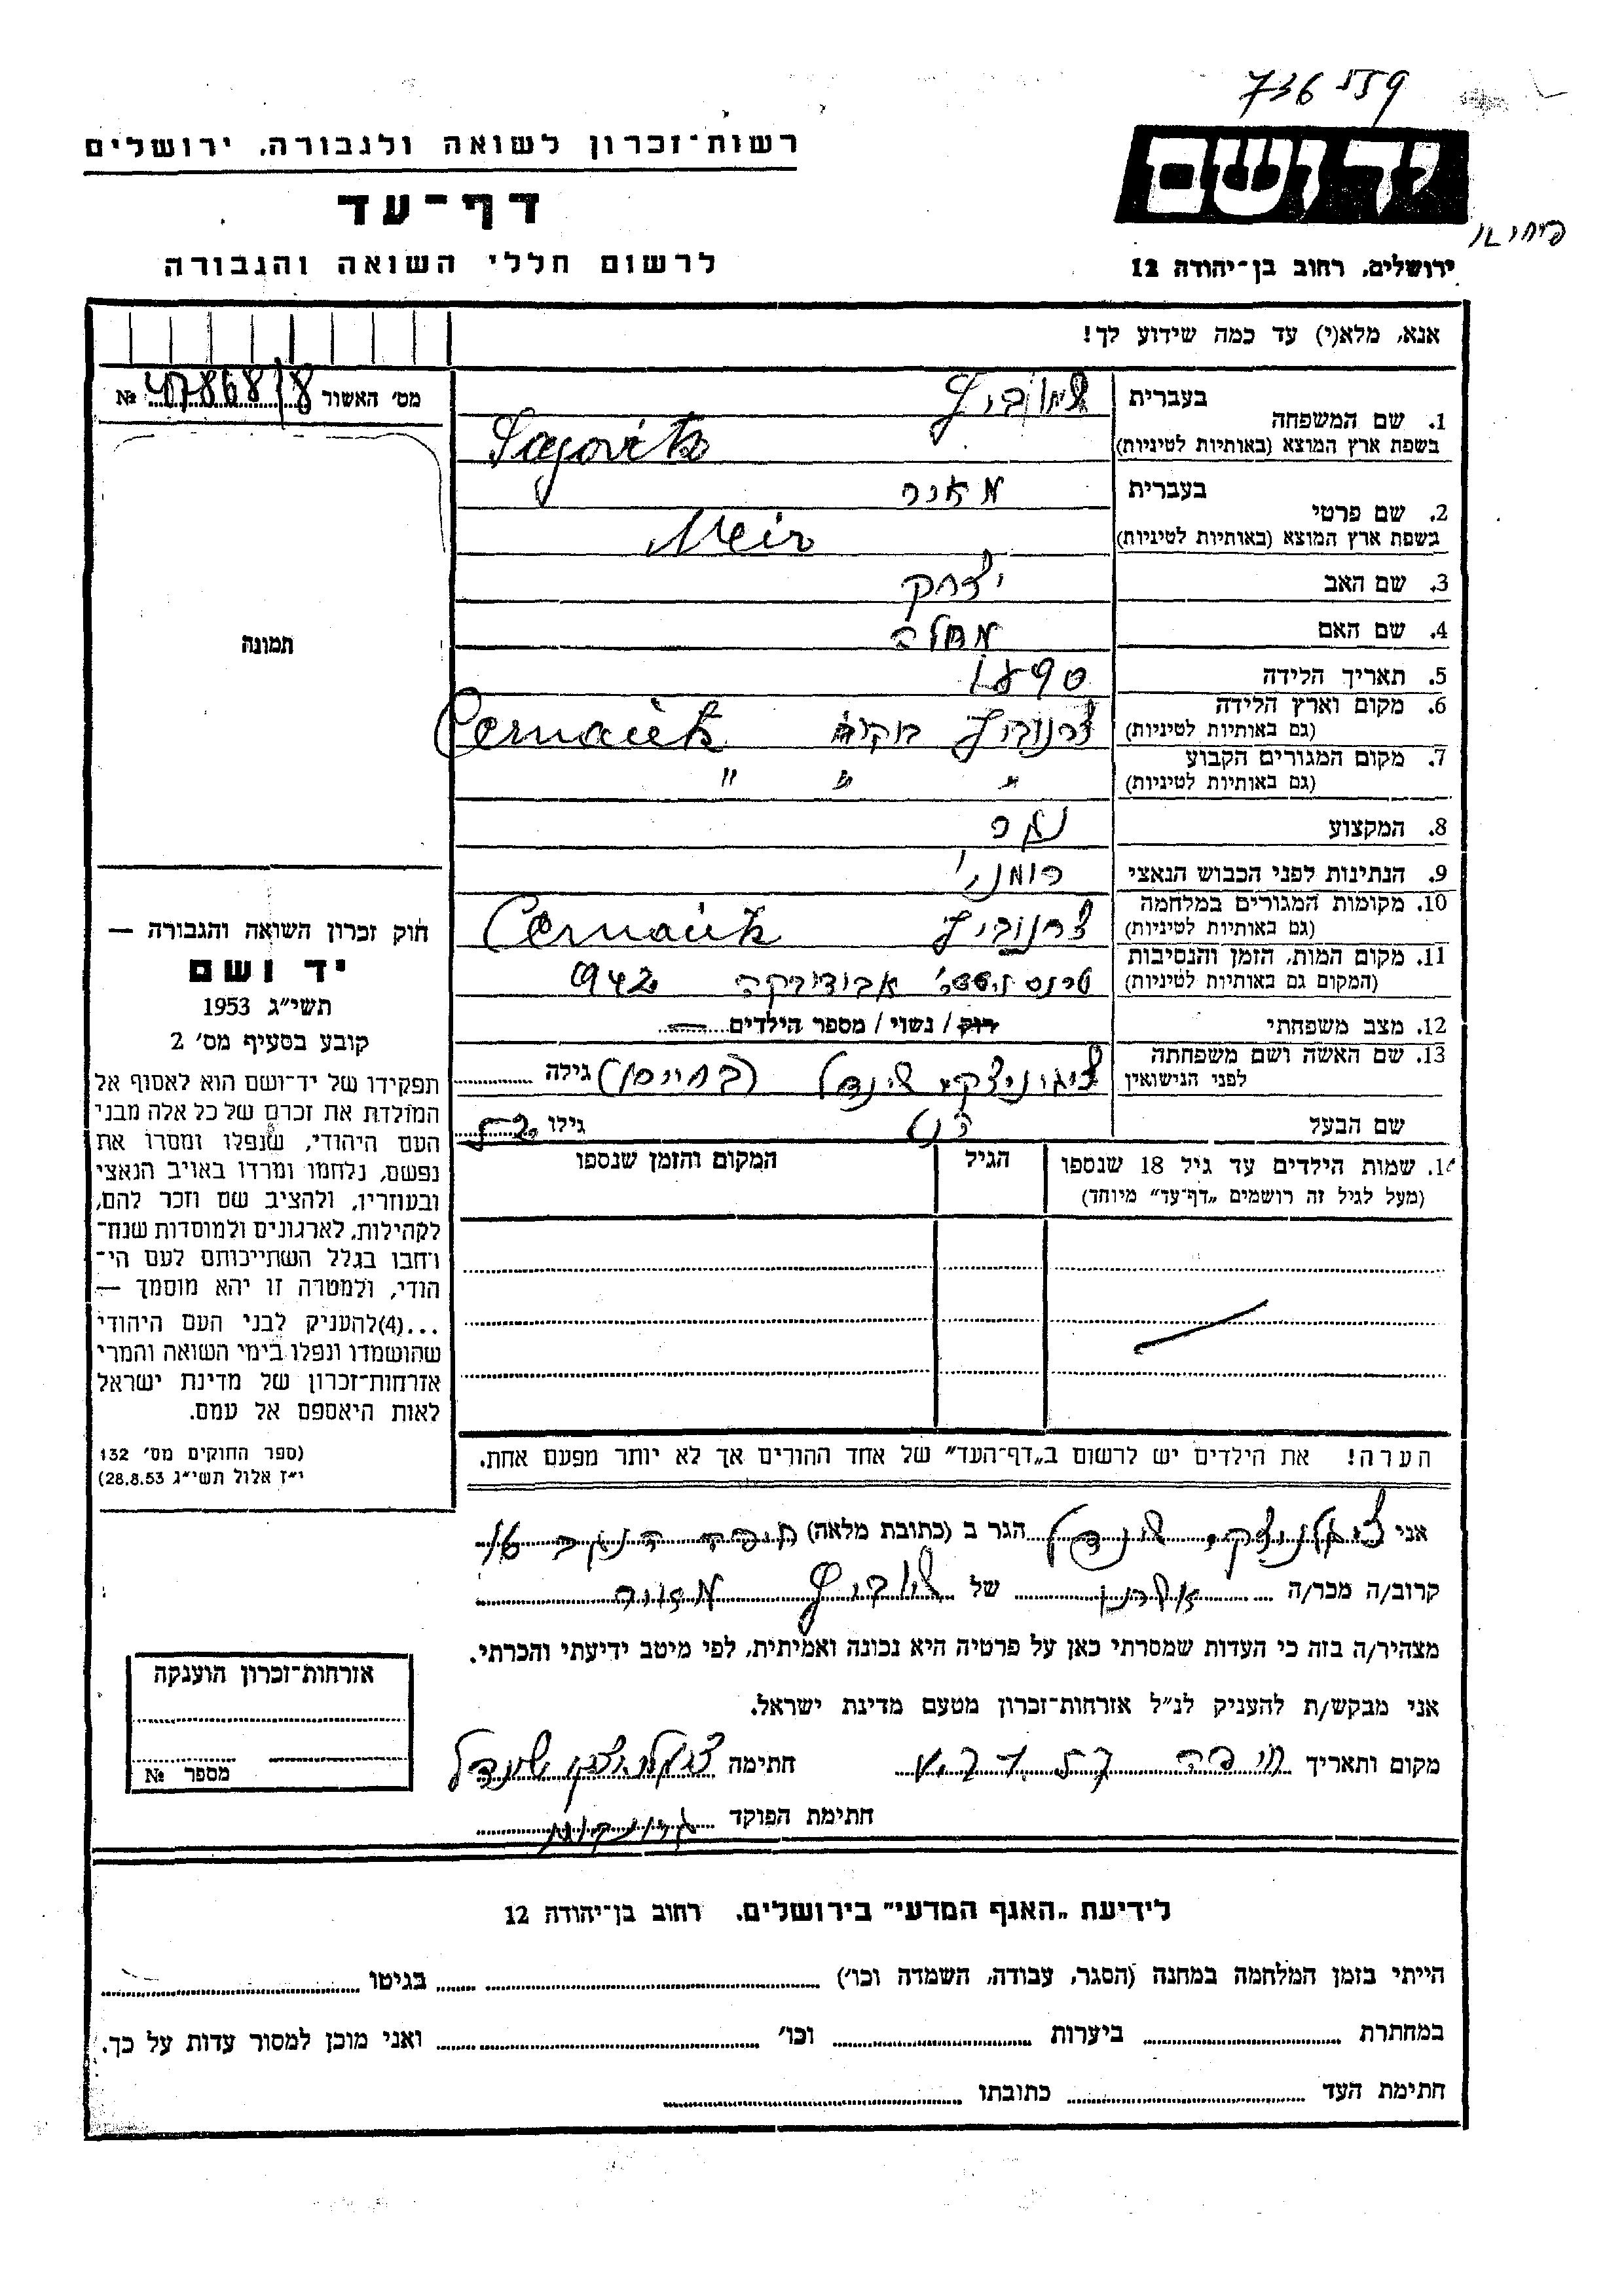 736 559
רשות-זכרון לשואה ולגבורה, ירושלים
יד ושם
דף-עד
לרשום חללי השואה והגבורה
ירושלים, רחוב בן-יהודה 12
אנא, מלא(י) עד כמה שידוע לך!
מס' האשור 47868/8 №
1. שם המשפחה
בעברית
בשפת ארץ המוצא (באותיות לטיניות)
2. שם פרטי
בעברית מאיר
בשפת ארץ המוצא (באותיות לטיניות) Meir
3. שם האב יצחק
4. שם האם
5. תאריך הלידה 1890
6. מקום וארץ הלידה צרנוביץ
(גם באותיות לטיניות)
7. מקום המגורים הקבוע " " "
(גם באותיות לטיניות)
8. המקצוע
9. הנתינות לפני הכבוש הנאצי רומני'
10. מקומות המגורים במלחמה צרנוביץ
(גם באותיות לטיניות)
11. מקום המות, הזמן והנסיבות 942
(המקום גם באותיות לטיניות)
12. מצב משפחתי רווק / נשוי / מספר הילדים
13. שם האשה ושם משפחתה
לפני הנישואין שינדל גילה
שם הבעל גילו 52
תמונה
חוק זכרון השואה והגבורה —
יד ושם
תשי"ג 1953
קובע בסעיף מס' 2
תפקידו של יד-ושם הוא לאסוף אל
המולדת את זכרם של כל אלה מבני
העם היהודי, שנפלו ומסרו את
נפשם, נלחמו ומרדו באויב הנאצי
ובעוזריו, ולהציב שם וזכר להם,
לקהילות, לארגונים ולמוסדות שנח-
רבו בגלל השתייכותם לעם הי-
הודי, ולמטרה זו יהא מוסמך —
...(4)להעניק לבני העם היהודי
שהושמדו ונפלו בימי השואה והמרי
אזרחות-זכרון של מדינת ישראל
לאות היאספם אל עמם.
(ספר החוקים מס' 132
י"ז אלול תשי"ג 28.8.53)
14. שמות הילדים עד גיל 18 שנספו
(מעל לגיל זה רושמים „דף-עד" מיוחד)
הגיל
המקום והזמן שנספו
הערה! את הילדים יש לרשום ב„דף-העד" של אחד ההורים אך לא יותר מפעם אחת.
אני שינדל הגר ב (כתובת מלאה)
קרוב/ה מכר/ה של מאיר
מצהיר/ה בזה כי העדות שמסרתי כאן על פרטיה היא נכונה ואמיתית, לפי מיטב ידיעתי והכרתי.
אני מבקש/ת להעניק לנ"ל אזרחות-זכרון מטעם מדינת ישראל.
מקום ותאריך חיפה חתימה שינדל
חתימת הפוקד
אזרחות-זכרון הוענקה
מספר №
לידיעת „האגף המדעי" בירושלים, רחוב בן-יהודה 12
הייתי בזמן המלחמה במחנה (הסגר, עבודה, השמדה וכו') בגיטו
במחתרת ביערות וכו' ואני מוכן למסור עדות על כך.
חתימת העד כתובתו